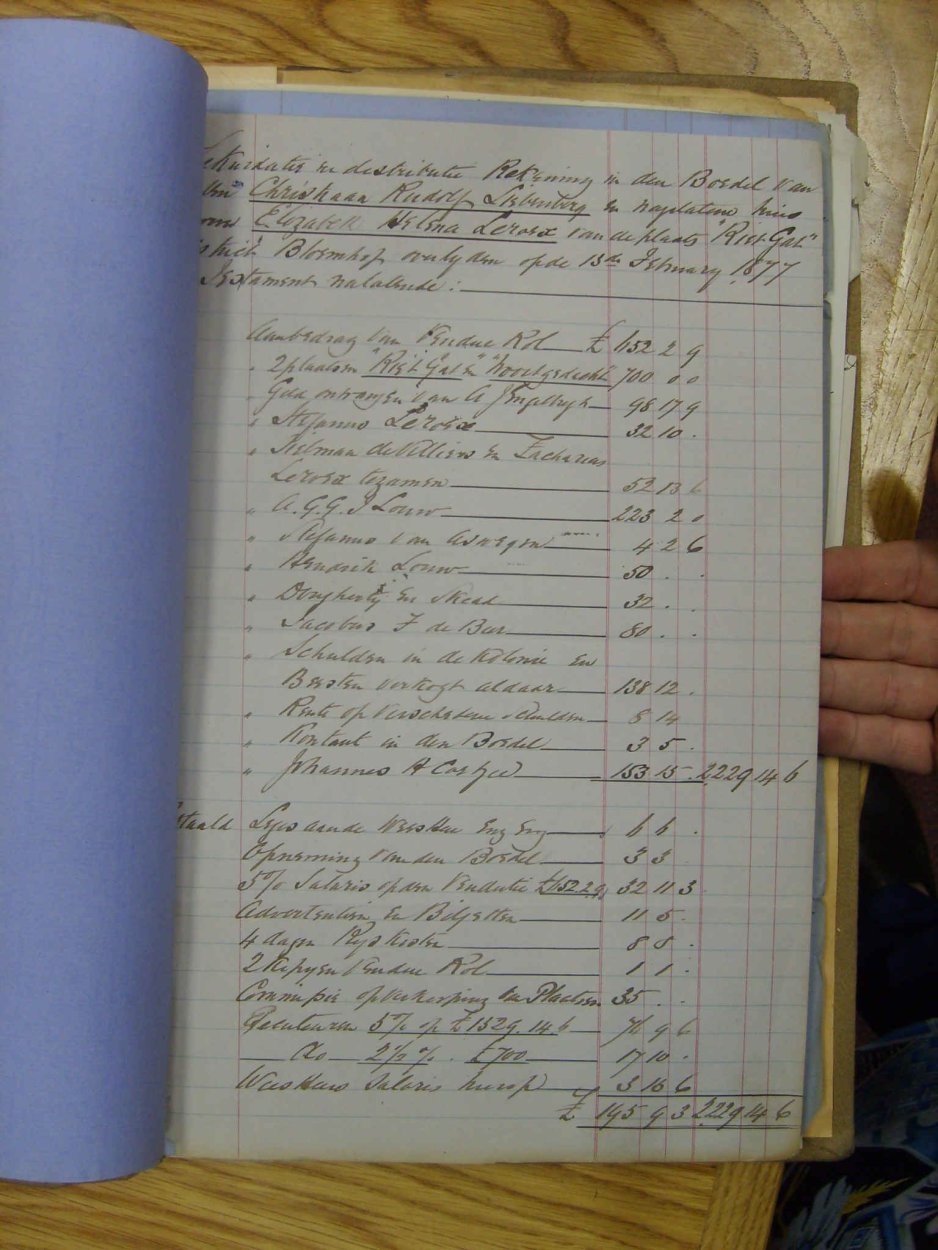 en distributie Rekening in den Boedel van
Christiaan Rudolf Liebenberg en nagelatene
Elizabeth Helena Leroex van de plaats "Riet Gat"
Bloemhof overlyden op de 13de February 1877
Testament nalatende :
Aanbedrag van Vendue Rol £ 652 2 9
" 2 plaatsen "Riet Gat" en "Nooitgedacht" 700 0 0
" Geld ontvangen van A J Engelbrgh 98 17 9
" Stefanus Leroex 32 10 .
" de Villiers en Zacharias
Leroex tezamen 52 13 6
" A. G. G. J Louw 223 2 0
" Stefanus van Aswegen 4 2 6
" Hendrik Louw 50 . .
" Dougherty En Mead 32 . .
" Jacobus F de Beer 80 . .
" Schulden in de Kolonie en
Beesten verkogt aldaar 138 12 .
" Rente op verschydene Schulden 8 14
" Kontant in den Boedel 3 5 .
" Johannes H Coetzee 153 15 . 2229 14 6
Leges aan de Weesheer Enz Enz 6 6 .
Opneming van den Boedel 3 3
5% Salaris op den Vendutie £652.2.9 32 11 3
Advertentien En Biljetten 11 5 .
4 dagen Rys Kosten 8 8 .
2 Kopyen Vendue Rol 1 1 .
Commissie op verkooping van Plaatsen 35 . .
5% op £1529.14.6 76 9 6
Do 2½ % . £700 17 10 .
Weesheers Salaris 3 16 6
£ 195 9 3 2229 14 6